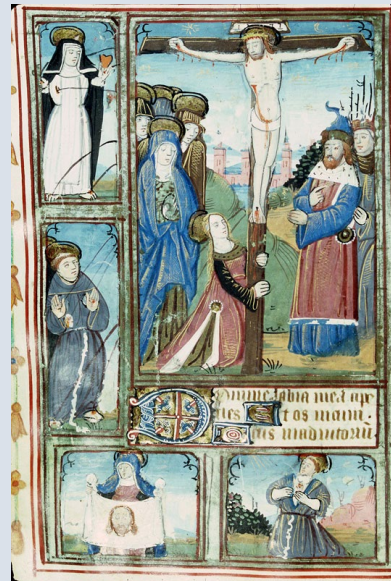 Domine labia mea ape
ries Et os
Deus in adiutoriū